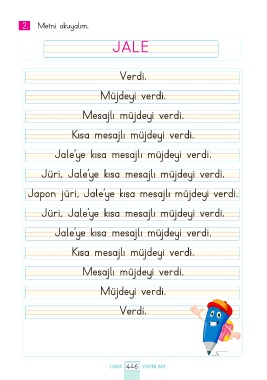 2. Metni okuyalım.
JALE
Verdi.
Müjdeyi verdi.
Mesajlı müjdeyi verdi.
Kısa mesajlı müjdeyi verdi.
Jale'ye kısa mesajlı müjdeyi verdi.
Jüri, Jale'ye kısa mesajlı müjdeyi verdi.
Japon jüri, Jale'ye kısa mesajlı müjdeyi verdi.
Jüri, Jale'ye kısa mesajlı müjdeyi verdi.
Jale'ye kısa mesajlı müjdeyi verdi.
Kısa mesajlı müjdeyi verdi.
Mesajlı müjdeyi verdi.
Müjdeyi verdi.
Verdi.
DATA 446 YAYINLARI